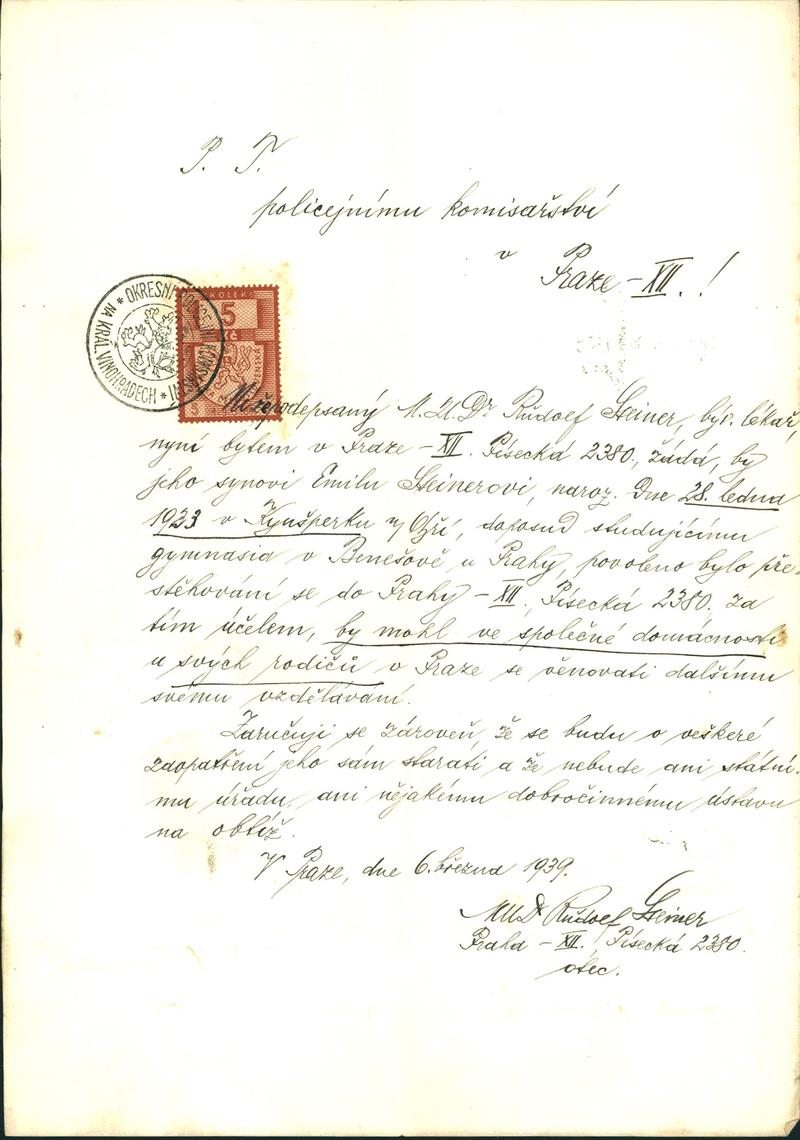 P. T.
policejnímu komisařství
v Praze - XII. !
* OKRESNÍ POLICEJNÍ KOMISAŘSTVÍ * NA KRÁL. VINOHRADECH
KOLEK
5
Kč
Níže podepsaný M.U.Dr Rudolf Steiner, býv. lékař,
nyní bytem v Praze - XII. Písecká 2380., žádá, by
jeho synovi Emilu Steinerovi, naroz. dne 28. ledna
1923 v Kynšperku n/Ohří, doposud studujícímu
gymnasia v Benešově u Prahy, povoleno bylo pře-
stěhování se do Prahy - XII., Písecká 2380. za
tím účelem, by mohl ve společné domácnosti
u svých rodičů v Praze se věnovati dalšímu
svému vzdělávání.
Zaručuji se zároveň, že se budu o veškeré
zaopatření jeho sám starati a že nebude ani státní-
mu úřadu, ani nějakému dobročinnému ústavu
na obtíž.
V Praze, dne 6. března 1939.
MUDr Rudolf Steiner
Praha - XII. Písecká 2380.
otec.